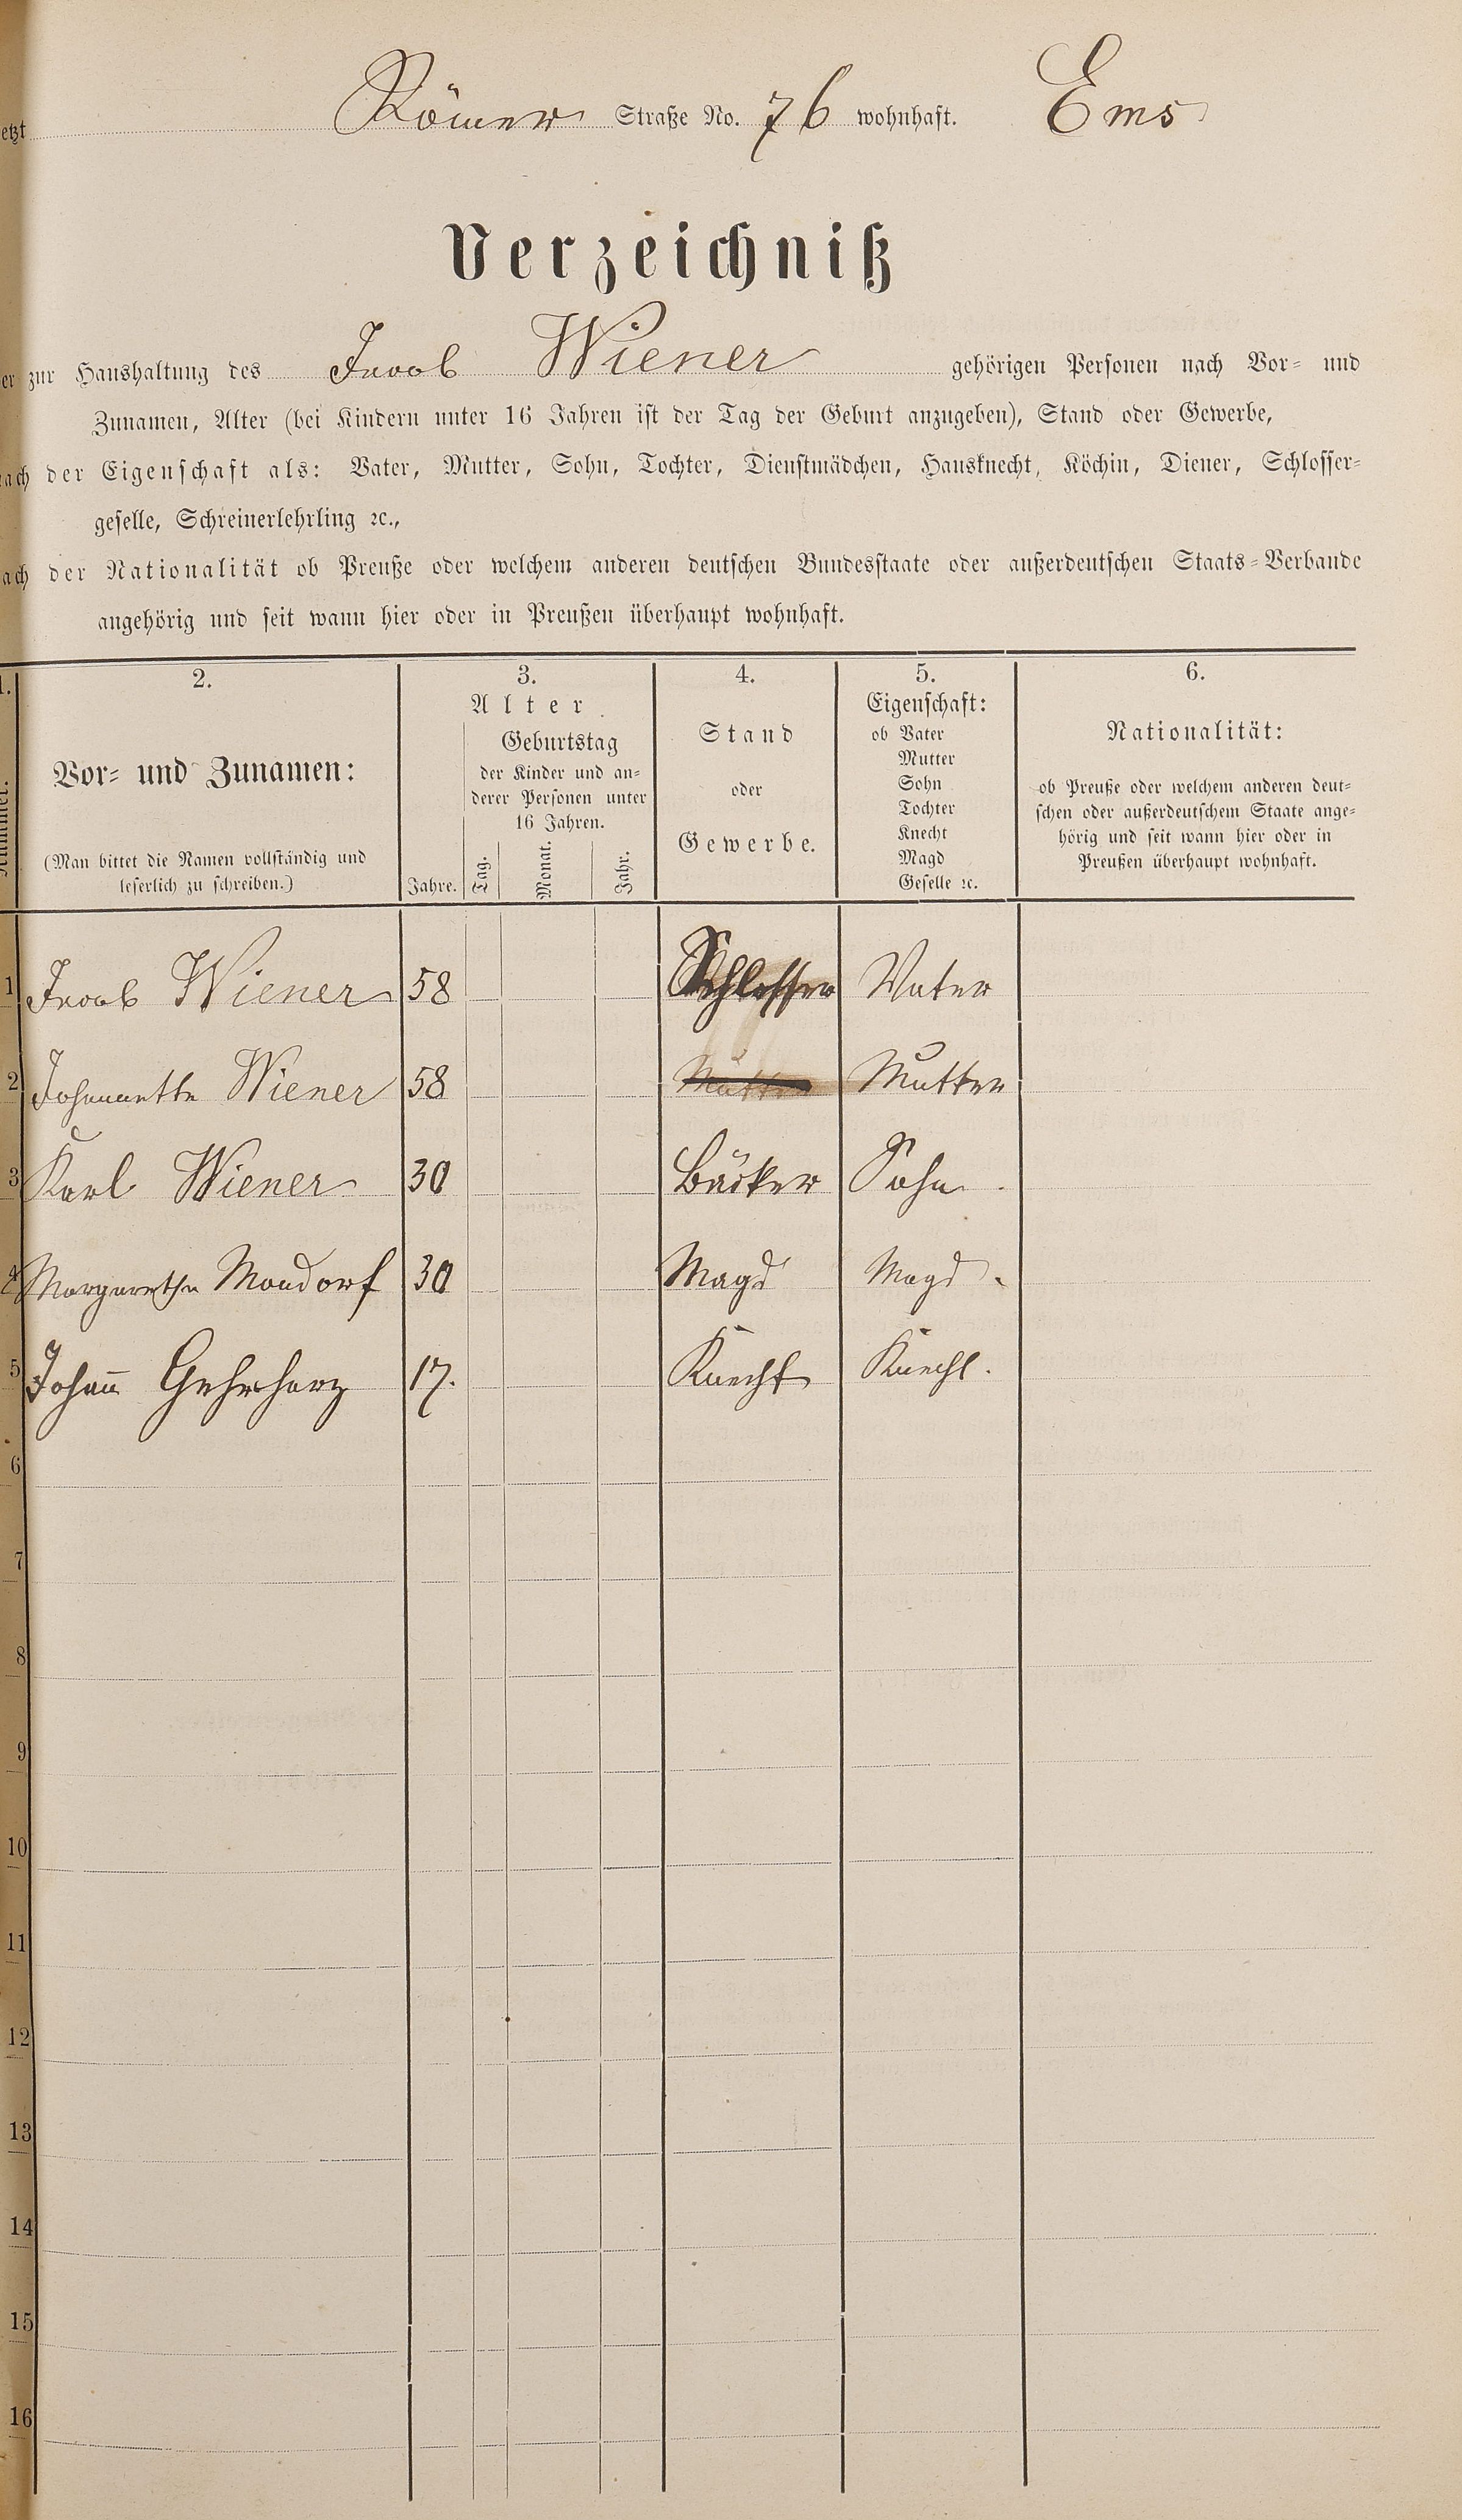 etzt Römer Straße No. 76 wohnhaft. Ems
Verzeichniß
er zur Haushaltung des Jacob Wiener gehörigen Personen nach Vor- und
Zunamen, Alter (bei Kindern unter 16 Jahren ist der Tag der Geburt anzugeben), Stand oder Gewerbe,
nach der Eigenschaft als: Vater, Mutter, Sohn, Tochter, Dienstmädchen, Hausknecht, Köchin, Diener, Schlosser-
geselle, Schreinerlehrling ꝛc.,
ach der Nationalität ob Preuße oder welchem anderen deutschen Bundesstaate oder außerdeutschen Staats-Verbande
angehörig und seit wann hier oder in Preußen überhaupt wohnhaft.
1. 2. 3. 4. 5. 6.
Nummer.
Vor- und Zunamen:
(Man bittet die Namen vollständig und
leserlich zu schreiben.)
Alter.
Geburtstag
der Kinder und an-
derer Personen unter
16 Jahren.
Jahre. Tag. Monat. Jahr.
Stand
oder
Gewerbe.
Eigenschaft:
ob Vater
Mutter
Sohn
Tochter
Knecht
Magd
Geselle ꝛc.
Nationalität:
ob Preuße oder welchem anderen deut-
schen oder außerdeutschem Staate ange-
hörig und seit wann hier oder in
Preußen überhaupt wohnhaft.
1 Jacob Wiener 58 Schlosser Vater
2 Johannette Wiener 58 Mutter Mutter
3 Karl Wiener 30 Bäcker Sohn.
4 Margarethe Mondorf 30 Magd Magd.
5 Johann̄ Gehrharz 17. Knecht Knecht.
6
7
8
9
10
11
12
13
14
15
16